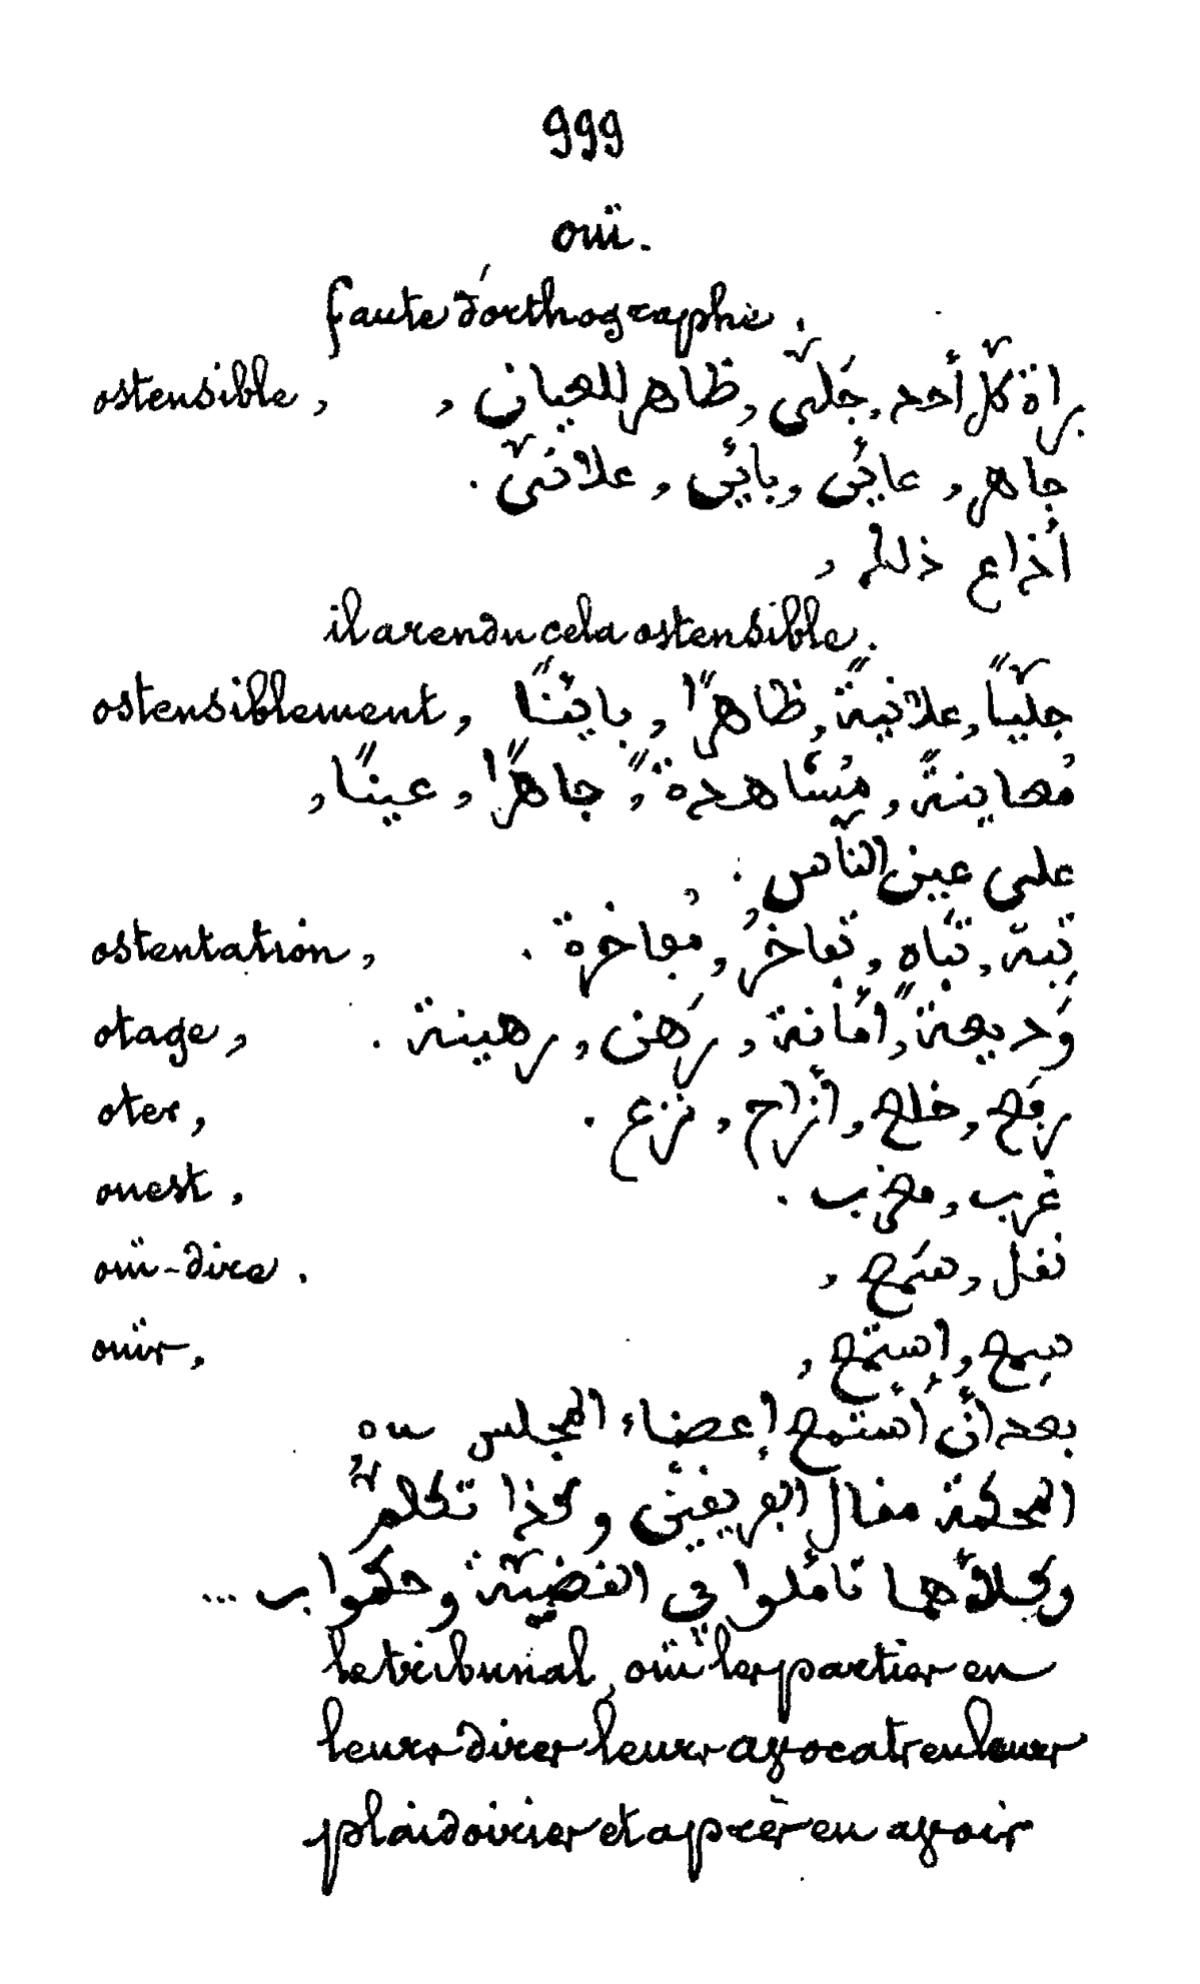 999
ouï.
faute d'orthographie.
ostensible, براة كلّ أحد, جَلىّ, ظاهر للعيان,
جاهر, عائن, بائن, علانىّ.
أذاع ذلك,
il a rendu cela ostensible.
ostensiblement, جليّاً, علانيةً, ظاهرًا, بائنًا,
مُعاينةً, مُشاهدةً, جاهرًا, عينًا,
على عين النّاس.
ostentation, تِيه, تَباه, تفاخُر, مُفاخرة.
otage, وَديعة, أمانة, رَهن, رهينة.
oter, رفع, خلع, أزاح, نزع.
ouest, غرب, مغرب.
ouï-dire. نقل, سَمع,
ouïr, سمِع, إستمع,
بعد أن أستمع إعضاء المجلس ou
المحكمة مقال الفريقين وكذا تكلم
وكلاؤهما تأملوا في القضيّة وحكموا ب...
le tribunal, ouï les parties en
leurs dires leurs avocats en leurs
plaidoiries et après en avoir